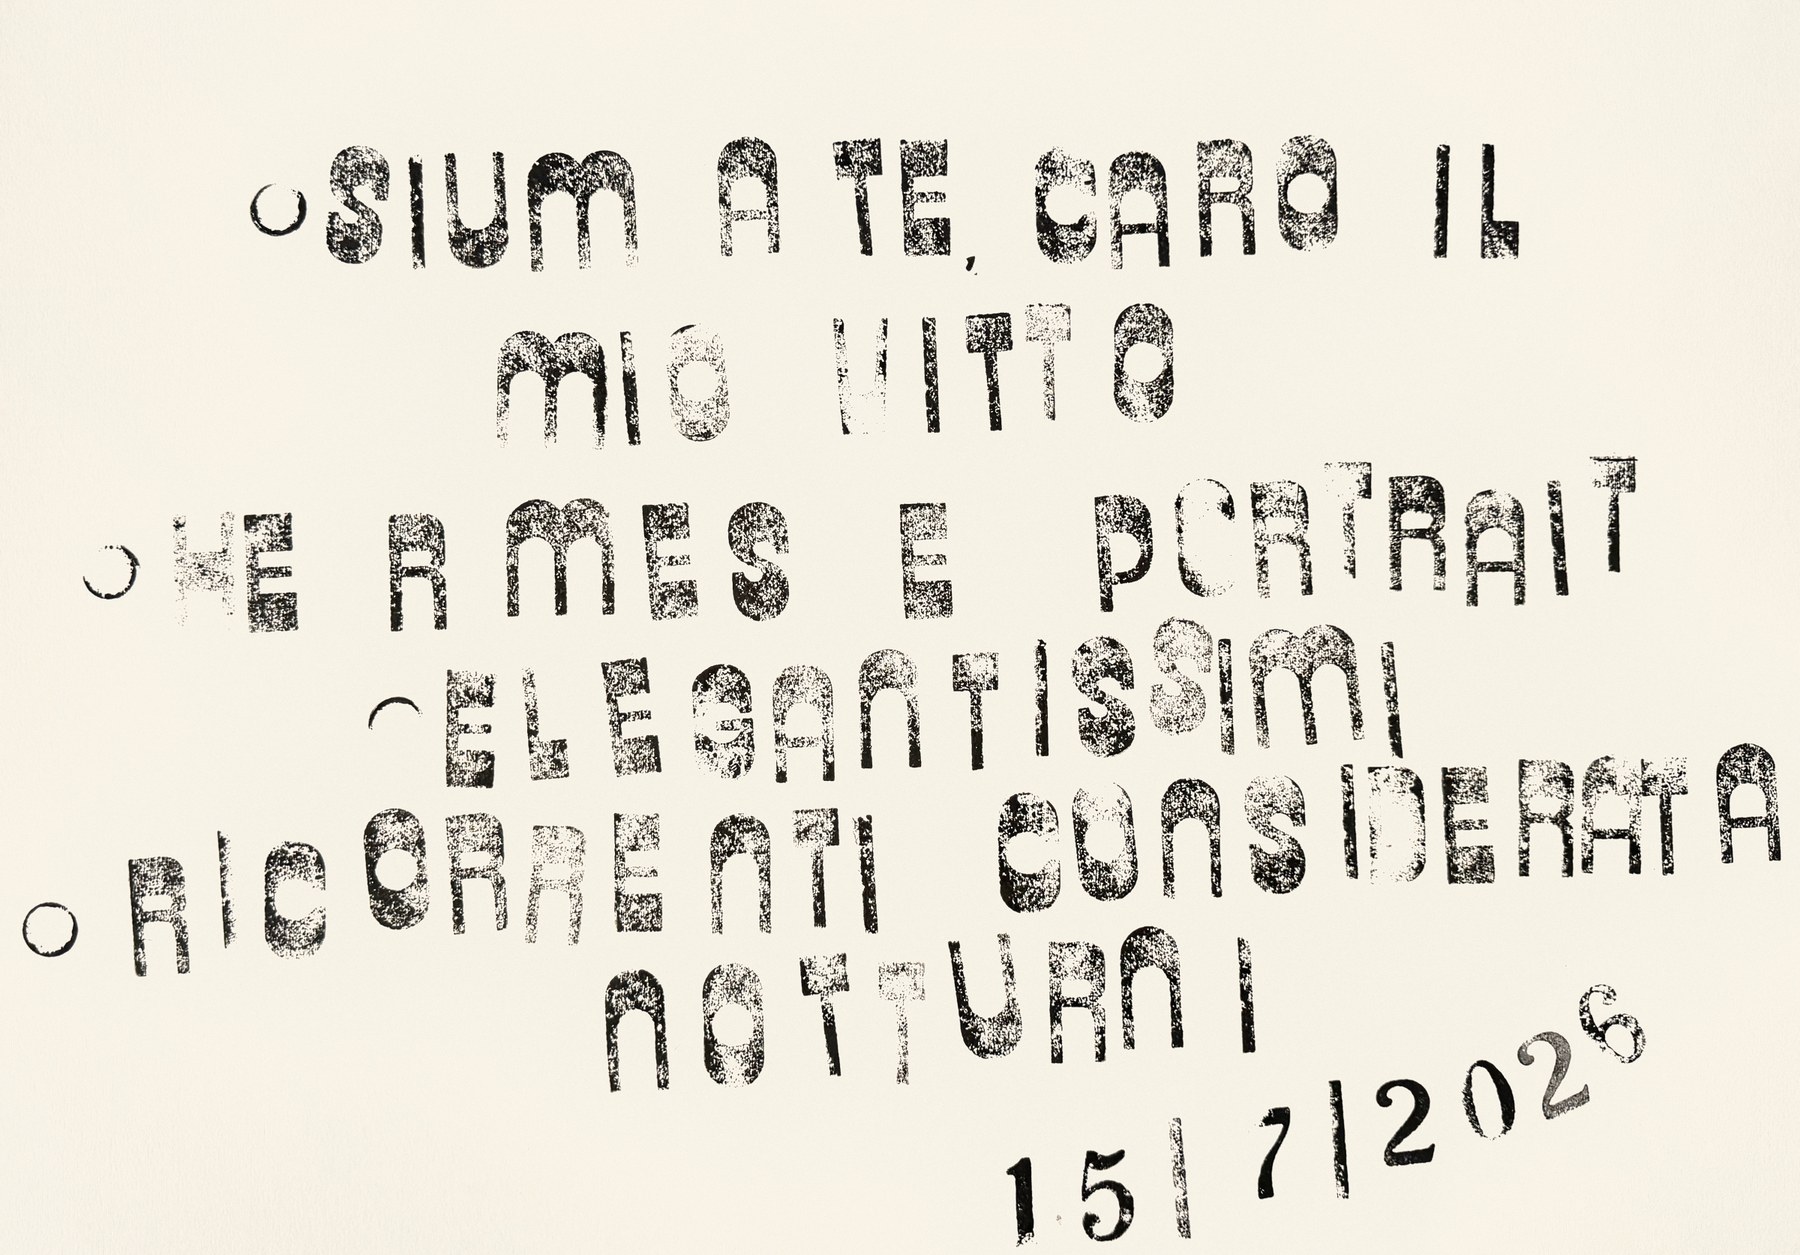 ○ SIUM A TE, CARO IL
MIO VITTO
○ HERMES E PORTRAIT
○ ELEGANTISSIMI
○ RICORRENTI CONSIDERATA
NOTTURNI
15/7/2026